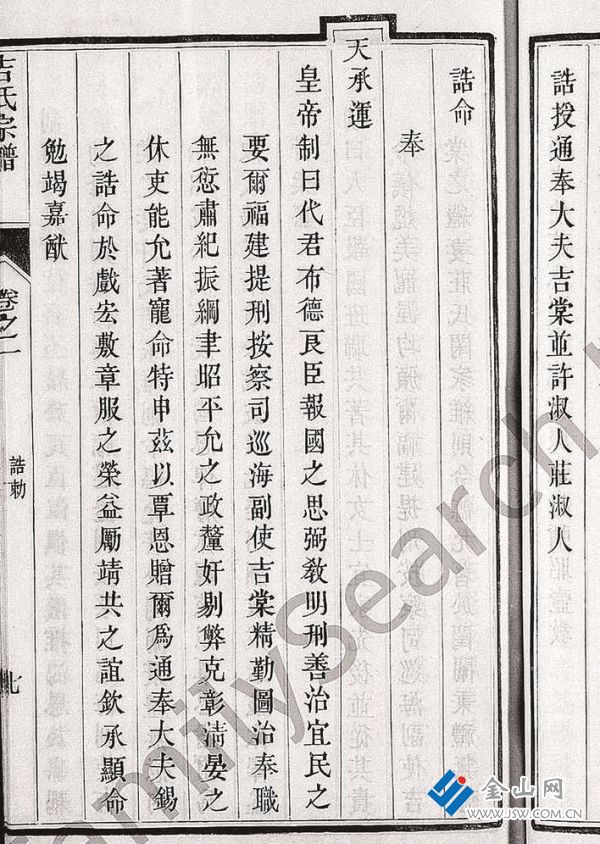 誥授通奉大夫吉棠並許淑人莊淑人
誥命
奉
天承運
皇帝制曰代君布德良臣報國之思弼教明刑善治宜民之
要爾福建提刑按察司巡海副使吉棠精勤圖治奉職
無愆肅紀振綱聿昭平允之政釐奸剔弊克彰清晏之
休吏能允著寵命特申茲以覃恩贈爾爲通奉大夫錫
之誥命於戲宏敷章服之榮益勵靖共之誼欽承顯命
勉竭嘉猷
吉氏宗譜
卷之二
誥勅
七
FamilySearch
金山网
WWW.JSW.COM.CN